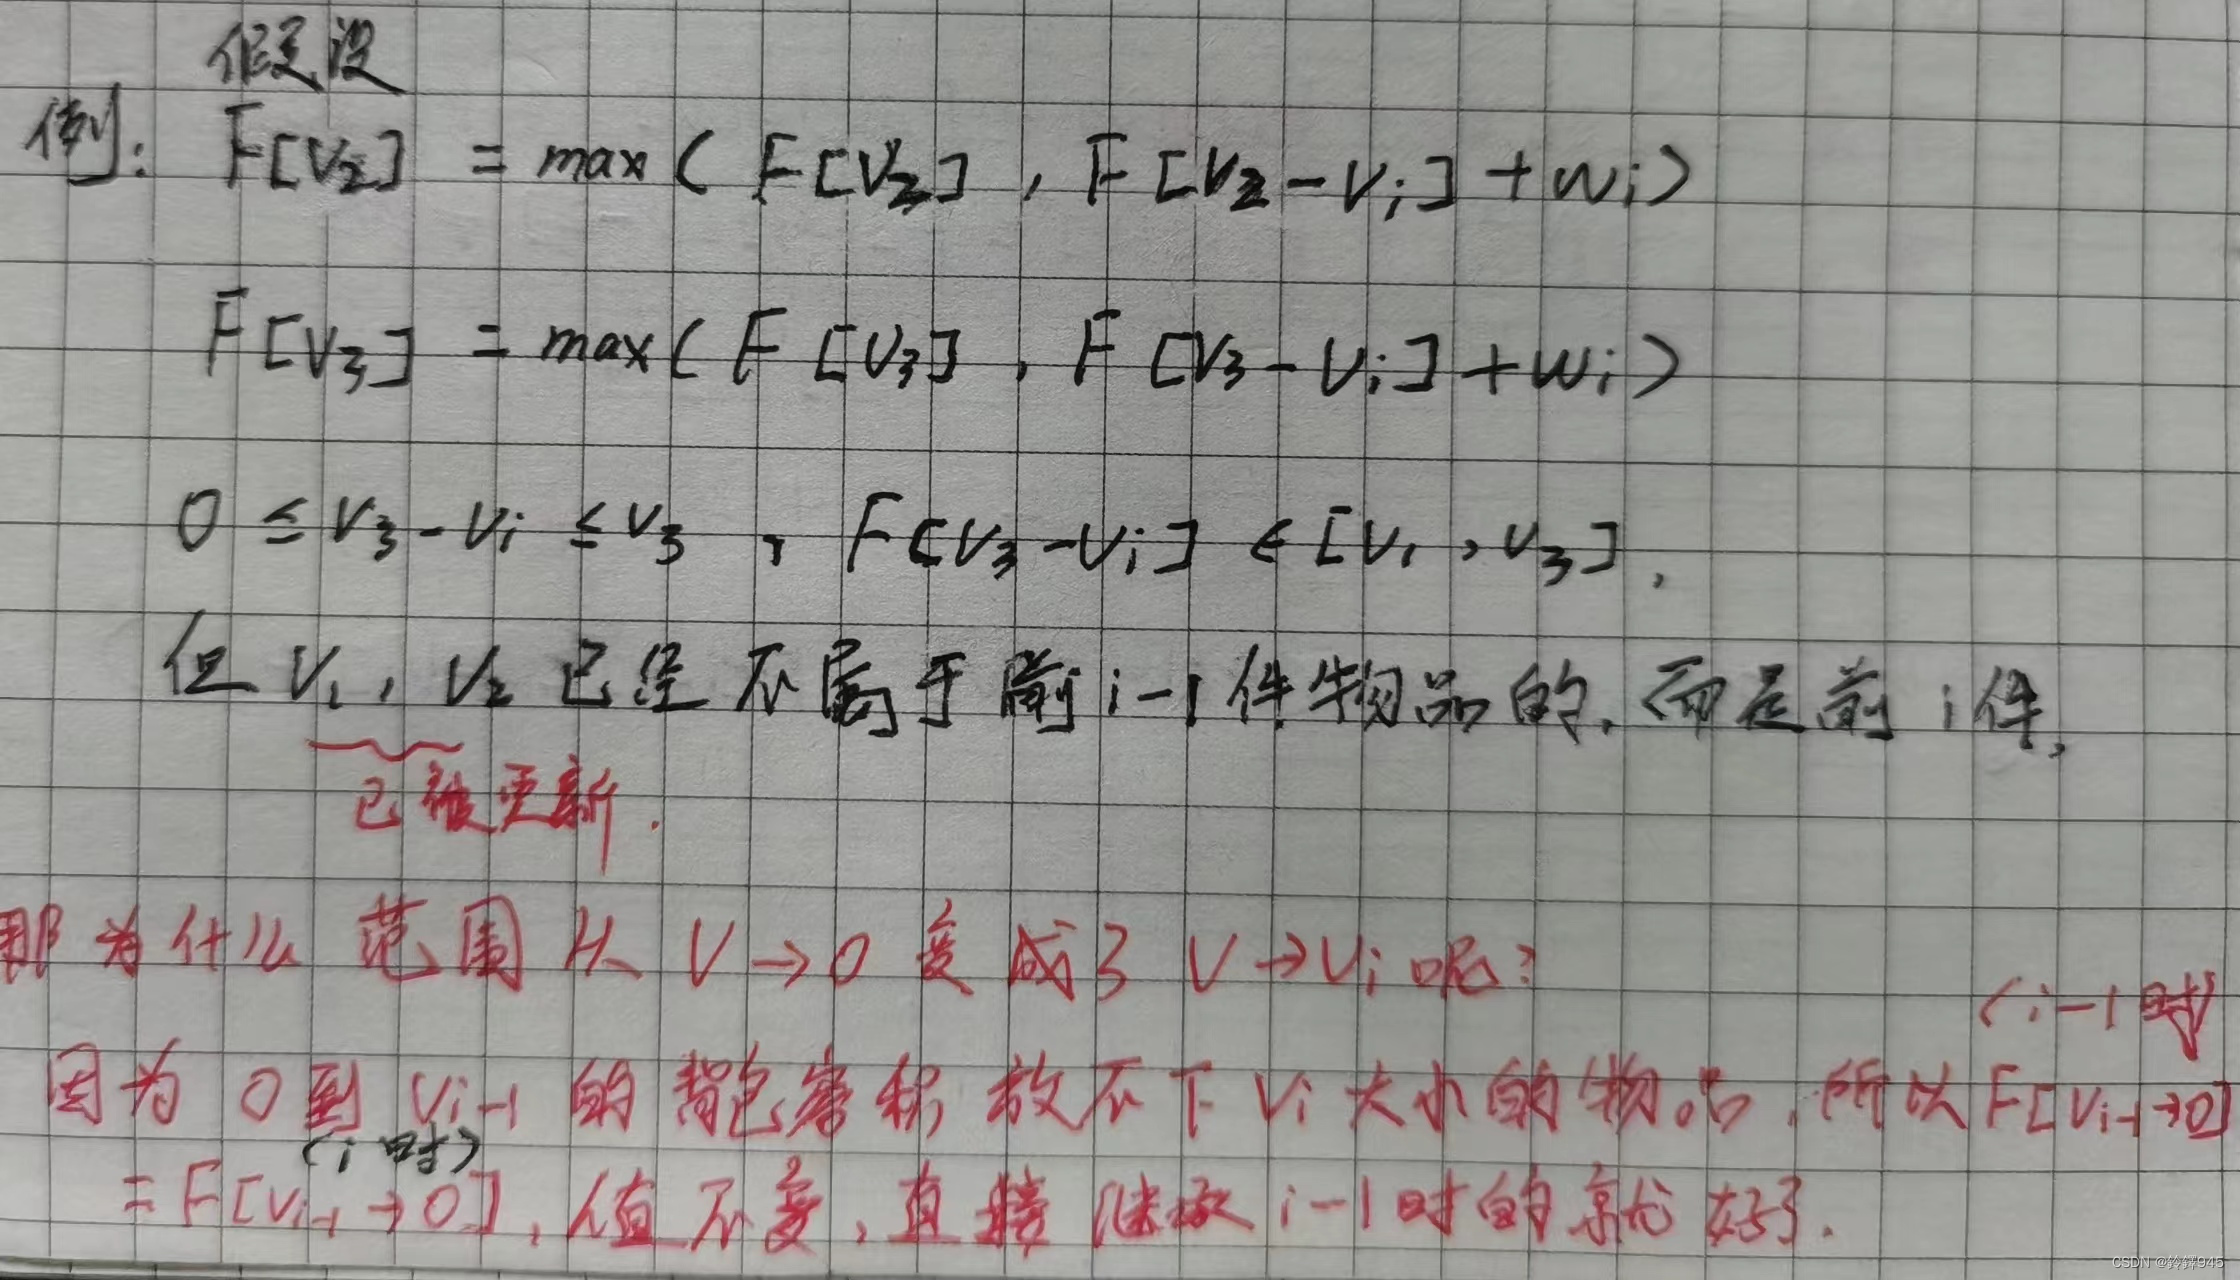 假设
例: F[V₂] = max( F[V₂] , F[V₂-Vi]+wi)
F[V₃] = max( F[V₃] , F[V₃-Vi]+wi)
0 ≤ V₃-Vi ≤ V₃ , F[V₃-Vi] ∈ [V₁ , V₃] ,
但 V₁, V₂ 已经不属于前 i-1 件物品的, 而是前 i 件,
已被更新.
那为什么范围从 V→0 变成了 V→Vi 呢?
(i-1时)
因为 0到 Vi-1 的背包容积放不下 Vi 大小的物品, 所以 F[Vi-1→0]
(i时)
= F[Vi-1→0], 值不变, 直接继承 i-1时的就好了.
CSDN @鈴鐸945